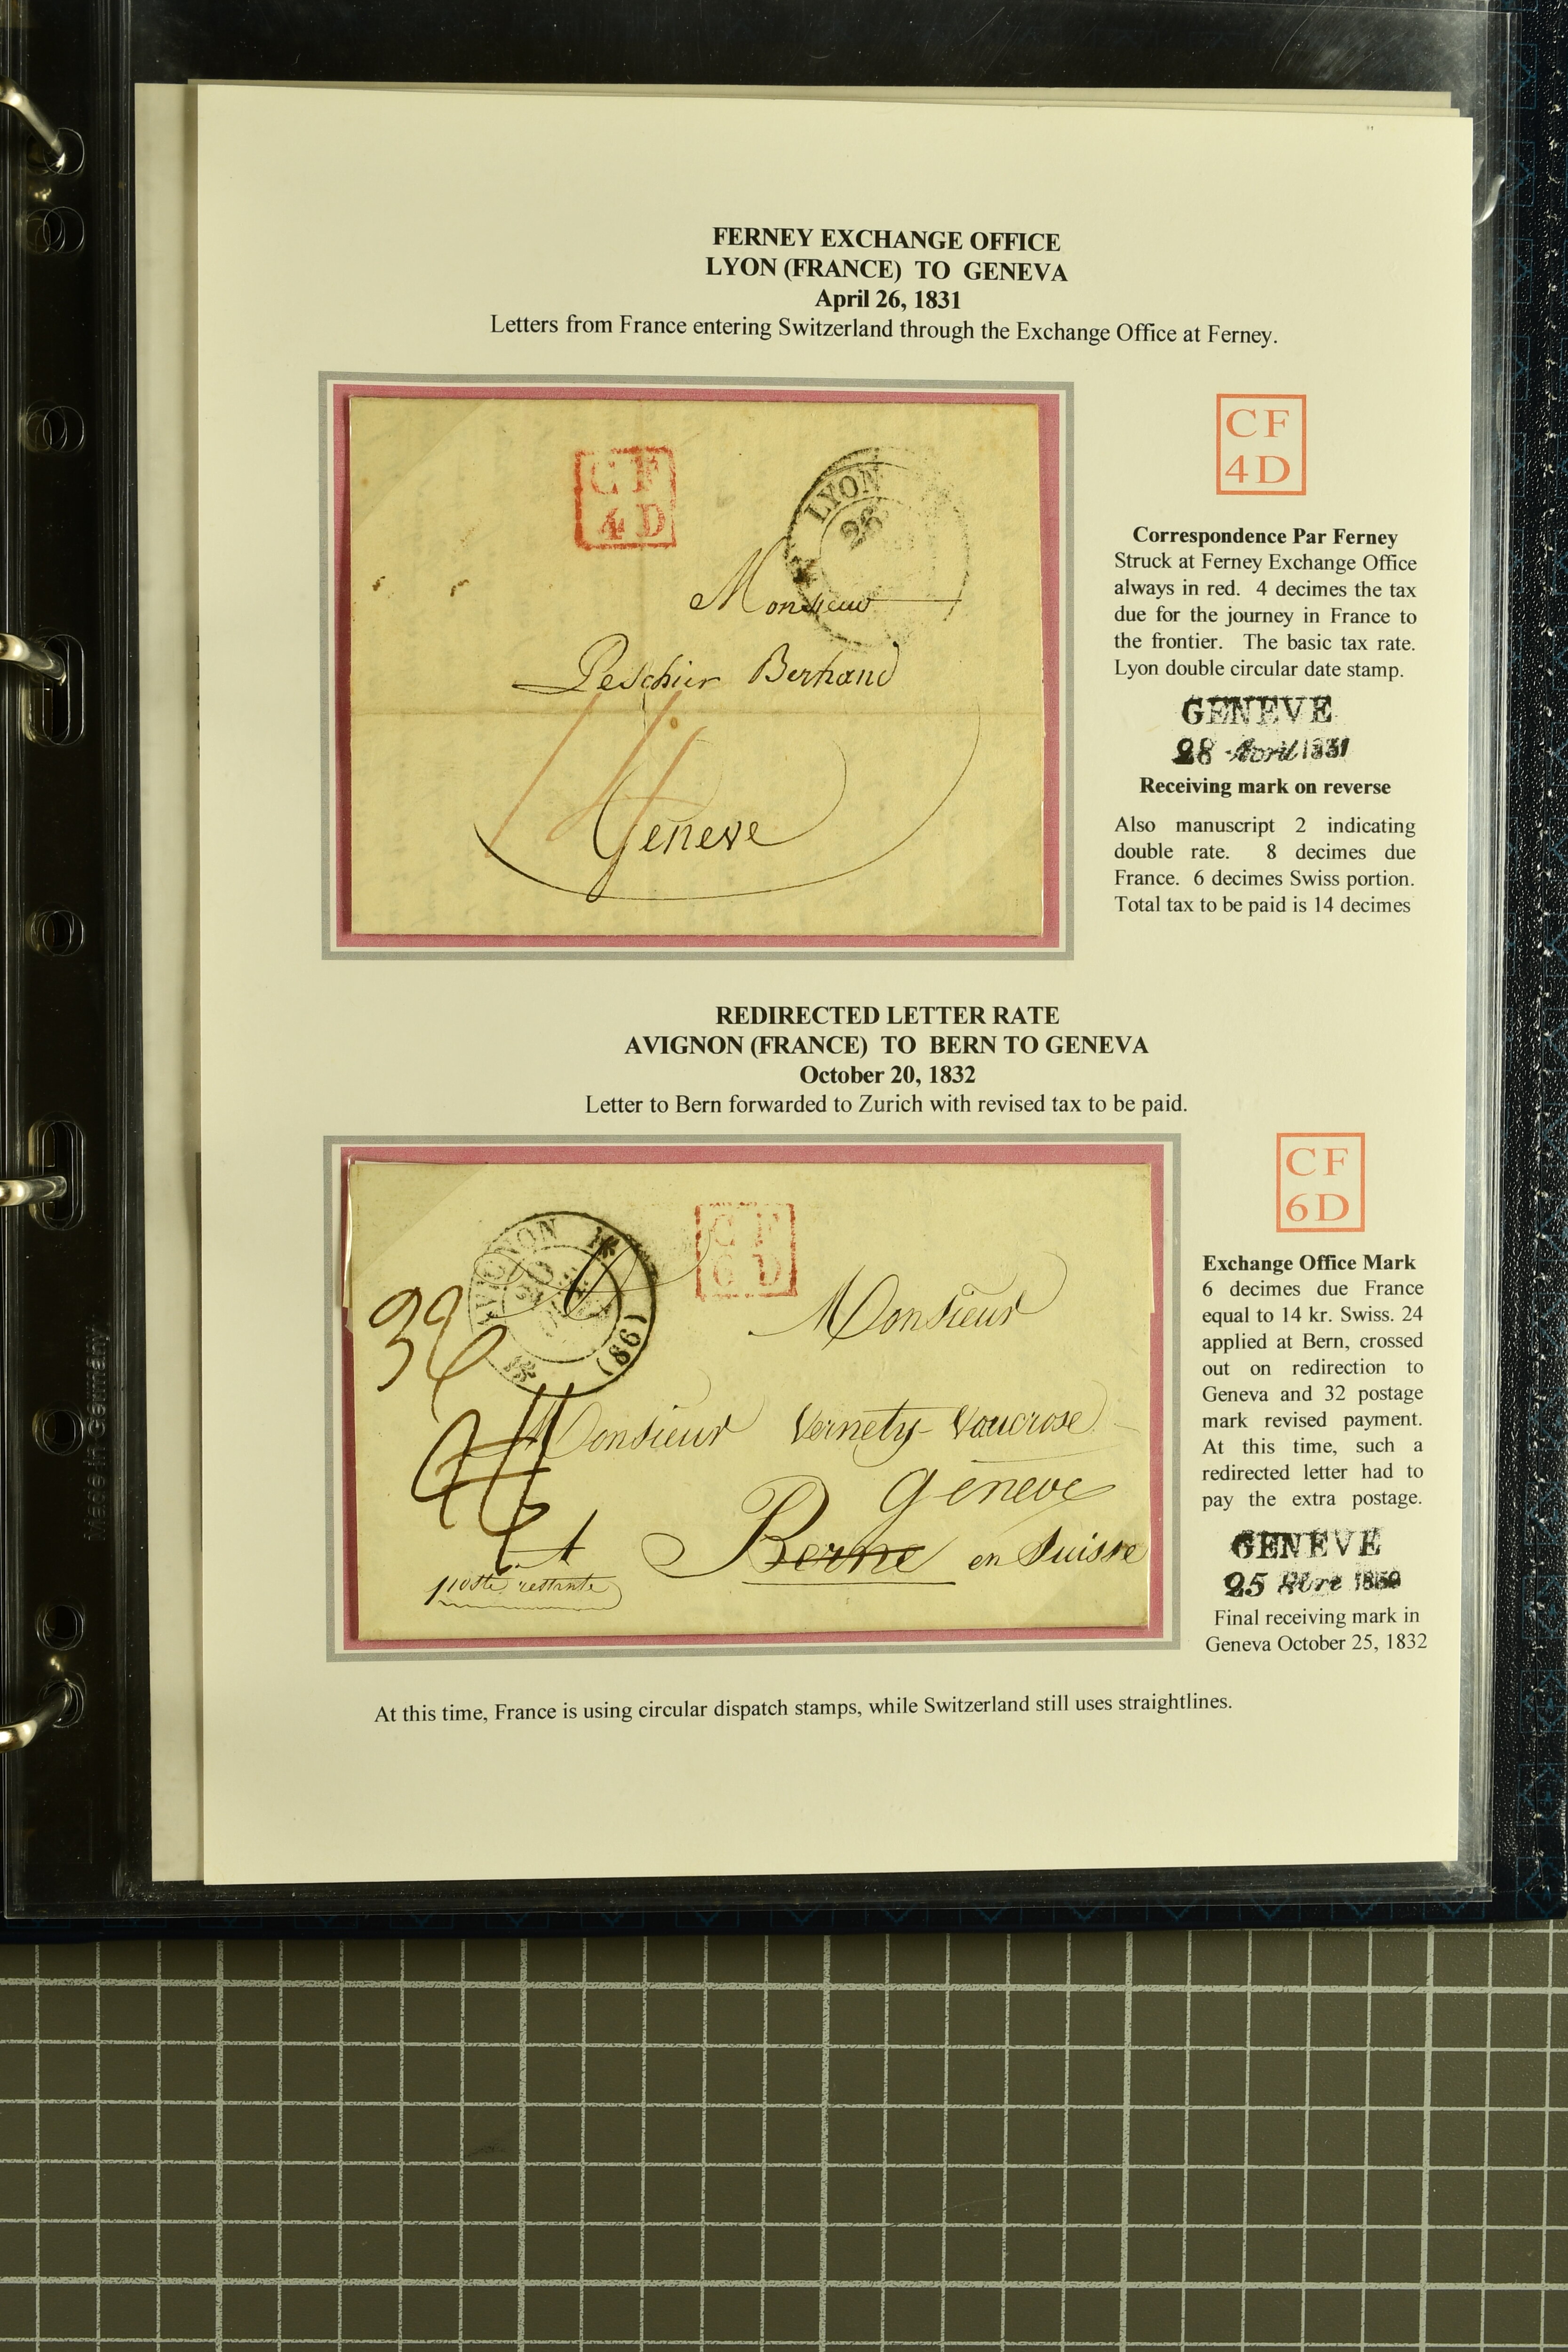 FERNEY EXCHANGE OFFICE
LYON (FRANCE) TO GENEVA
April 26, 1831
Letters from France entering Switzerland through the Exchange Office at Ferney.
CF
4D
LYON
26
Monsieur
Peschier Bertrand
14
Geneve
CF
4D
Correspondence Par Ferney
Struck at Ferney Exchange Office
always in red. 4 decimes the tax
due for the journey in France to
the frontier. The basic tax rate.
Lyon double circular date stamp.
GENEVE
28 Avril 1831
Receiving mark on reverse
Also manuscript 2 indicating
double rate. 8 decimes due
France. 6 decimes Swiss portion.
Total tax to be paid is 14 decimes
REDIRECTED LETTER RATE
AVIGNON (FRANCE) TO BERN TO GENEVA
October 20, 1832
Letter to Bern forwarded to Zurich with revised tax to be paid.
AVIGNON
20
(86)
CF
6D
Monsieur
Monsieur Vernety-Vaucrose
Genève
Berne en Suisse
poste restante
CF
6D
Exchange Office Mark
6 decimes due France
equal to 14 kr. Swiss. 24
applied at Bern, crossed
out on redirection to
Geneva and 32 postage
mark revised payment.
At this time, such a
redirected letter had to
pay the extra postage.
GENEVE
25
Final receiving mark in
Geneva October 25, 1832
At this time, France is using circular dispatch stamps, while Switzerland still uses straightlines.
Made in Germany